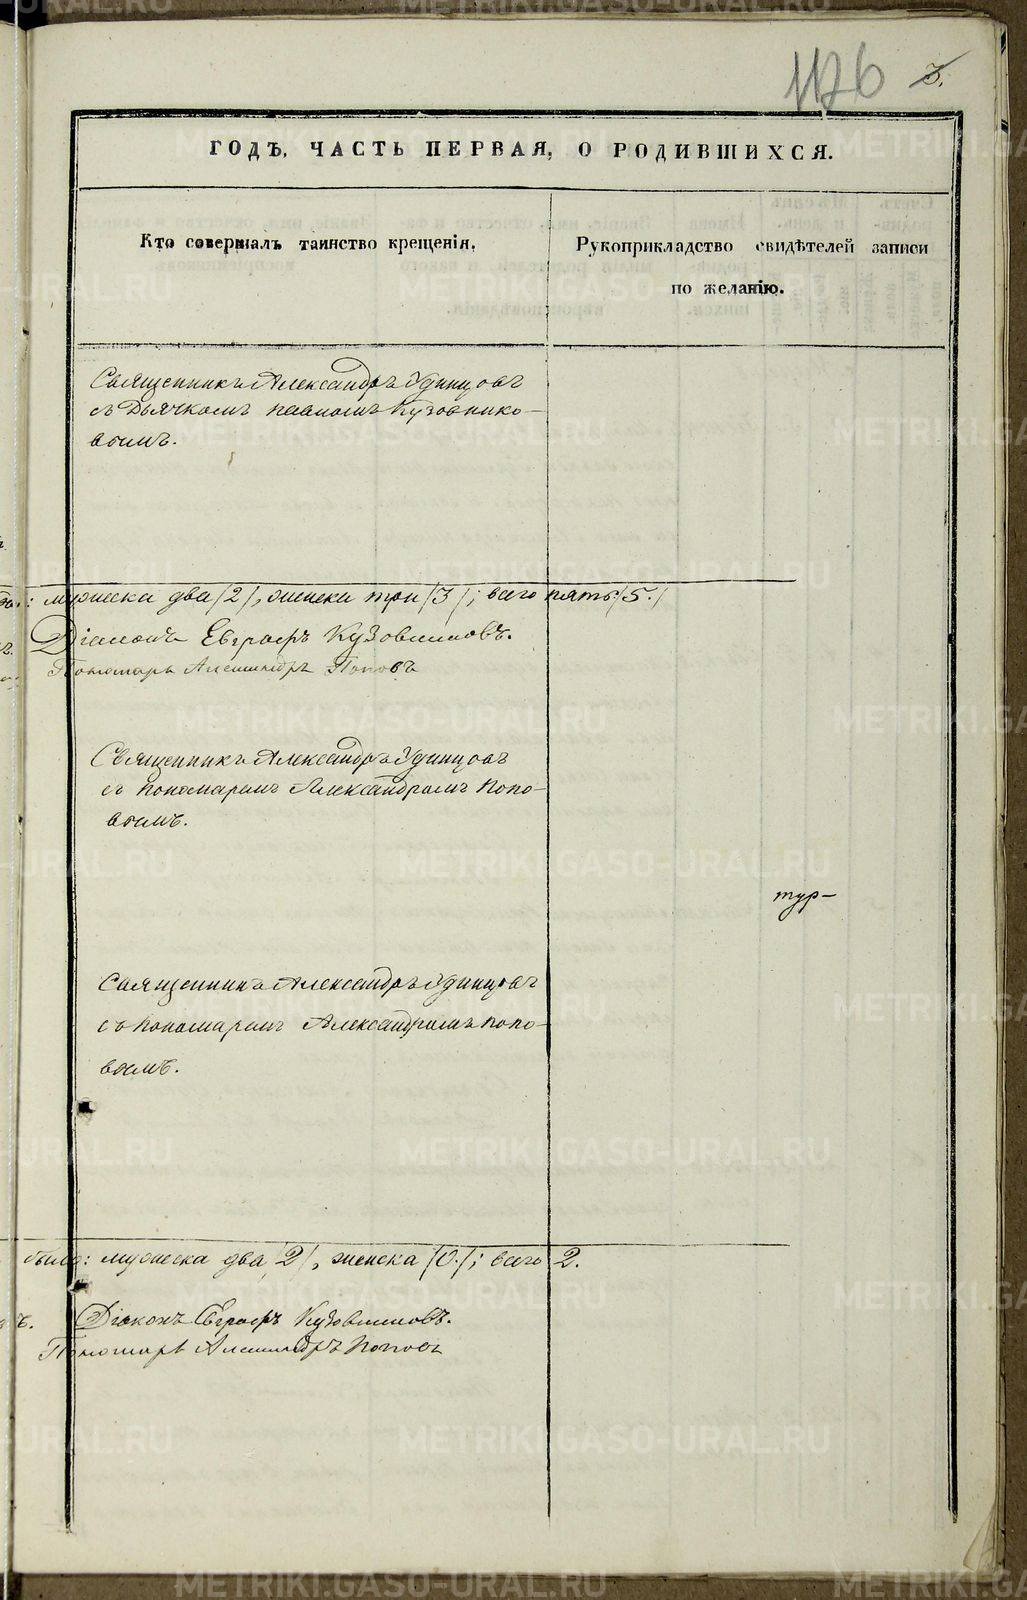 1126 3.
ГОДЪ, ЧАСТЬ ПЕРВАЯ, О РОДИВШИХСЯ.
Кто совершалъ таинство крещенія.
Рукоприкладство свидѣтелей записи
по желанію.
Священникъ Александръ Удинцовъ
съ Дьячкомъ Павломъ Кузовнико-
вымъ.
мужеска два /2/, женска три /3/; всего пять /5./
Діаконъ Евграфъ Кузовниковъ.
Пономарь Александръ Поповъ
Священникъ Александръ Удинцовъ
съ Пономаремъ Александромъ Попо-
вымъ.
тур-
Священникъ Александръ Удинцовъ
съ Пономаремъ Александромъ Попо-
вымъ.
было: мужеска два /2/, женска /0./; всего 2.
Діаконъ Евграфъ Кузовниковъ.
Пономарь Александръ Поповъ
METRIKI.GASO-URAL.RU